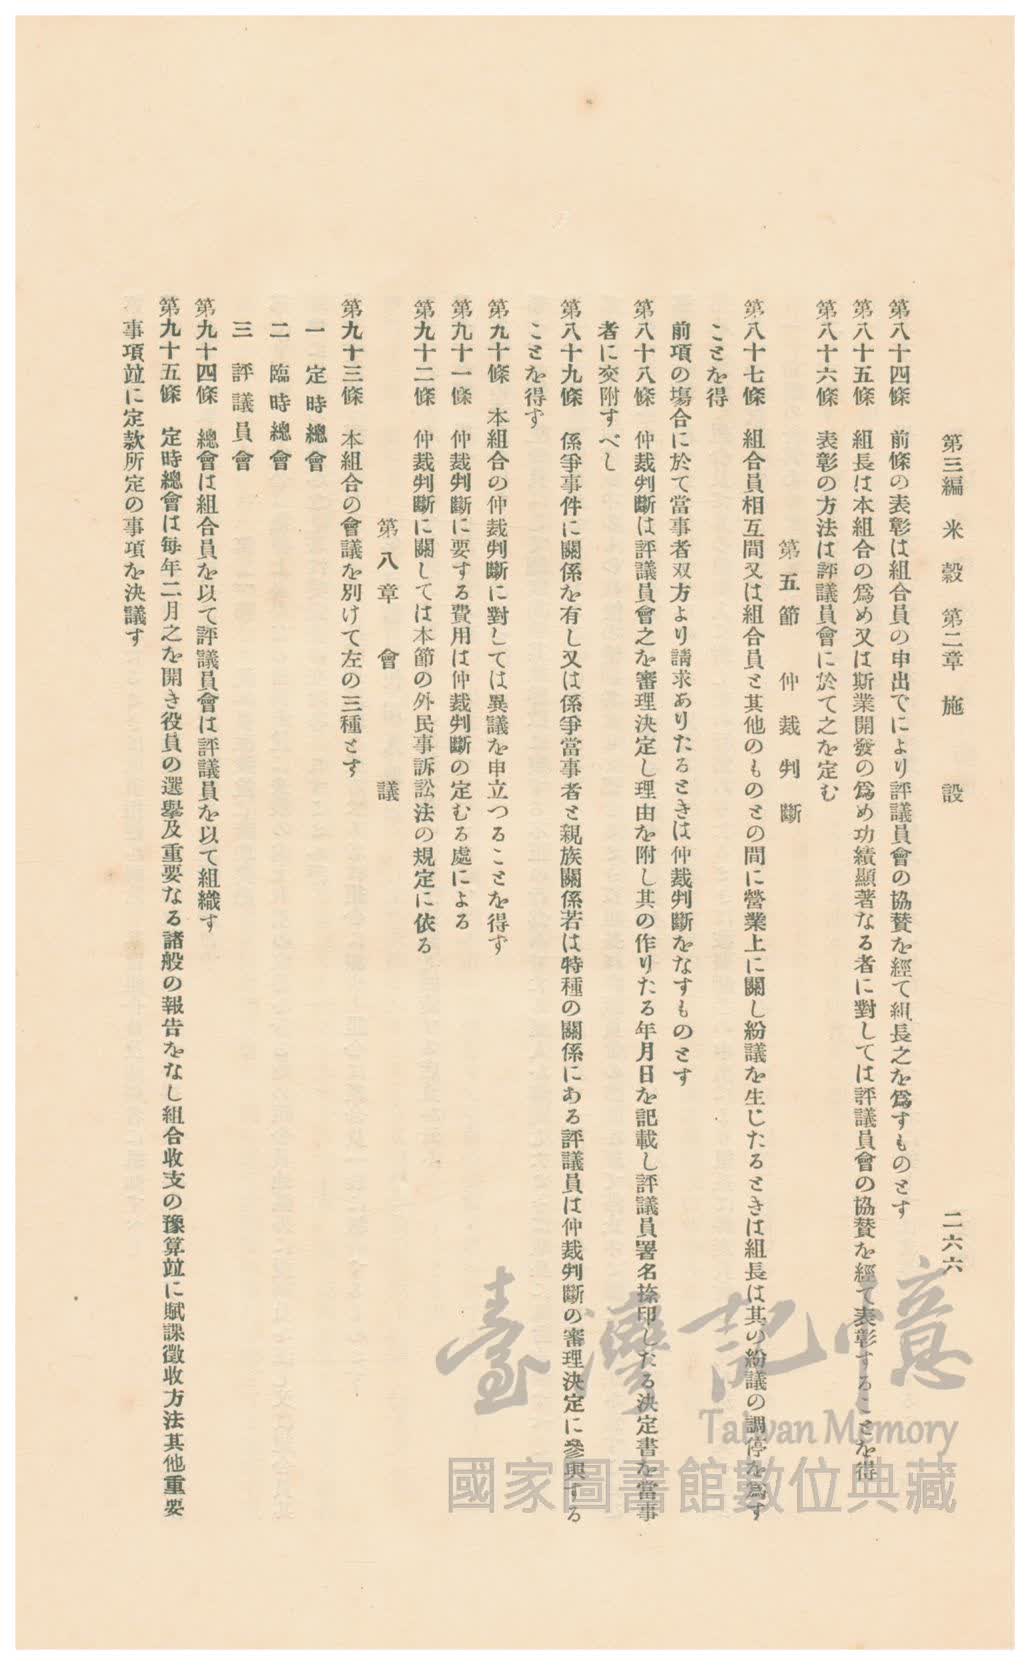 第三編 米穀 第二章 施設 二六六
第八十四條 前條の表彰は組合員の申出でにより評議員會の協賛を經て組長之を爲すものとす
第八十五條 組長は本組合の爲め又は斯業開發の爲め功績顯著なる者に對しては評議員會の協賛を經て表彰することを得
第八十六條 表彰の方法は評議員會に於て之を定む
第五節 仲裁判斷
第八十七條 組合員相互間又は組合員と其他のものとの間に營業上に關し紛議を生じたるときは組長は其の紛議の調停を爲す
ことを得
前項の場合に於て當事者双方より請求ありたるときは仲裁判斷をなすものとす
第八十八條 仲裁判斷は評議員會之を審理決定し理由を附し其の作りたる年月日を記載し評議員署名捺印したる決定書を當事
者に交附すべし
第八十九條 係爭事件に關係を有し又は係爭當事者と親族關係若は特種の關係にある評議員は仲裁判斷の審理決定に參與する
ことを得す
第九十條 本組合の仲裁判斷に對しては異議を申立つることを得す
第九十一條 仲裁判斷に要する費用は仲裁判斷の定むる處による
第九十二條 仲裁判斷に關しては本節の外民事訴訟法の規定に依る
第八章 會議
第九十三條 本組合の會議を別けて左の三種とす
一 定時總會
二 臨時總會
三 評議員會
第九十四條 總會は組合員を以て評議員會は評議員を以て組織す
第九十五條 定時總會は毎年二月之を開き役員の選擧及重要なる諸般の報告をなし組合收支の豫算竝に賦課徵收方法其他重要
事項竝に定款所定の事項を決議す
臺灣記憶
Taiwan Memory
國家圖書館數位典藏